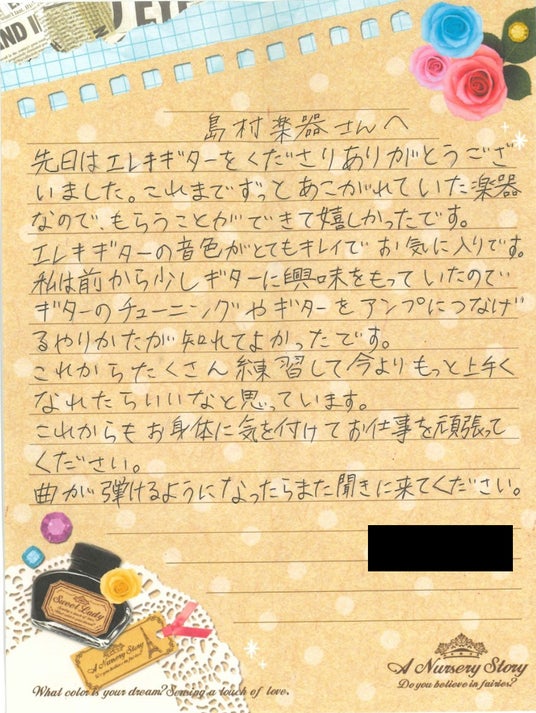 AND I
島村楽器さんへ
先日はエレキギターをくださりありがとうござ
いました。これまでずっとあこがれていた楽器
なので、もらうことができて嬉しかったです。
エレキギターの音色がとてもキレイでお気に入りです。
私は前から少しギターに興味をもっていたので
ギターのチューニングやギターをアンプにつなげ
るやりかたが知れてよかったです。
これからたくさん練習して今よりもっと上手く
なれたらいいなと思っています。
これからもお身体に気を付けてお仕事を頑張って
ください。
曲が弾けるようになったらまた聞きに来てください。
Sweet Lady
A Nursery Story
What color is your dream? Sensing a touch of love.
A Nursery Story
Do you believe in fairies?